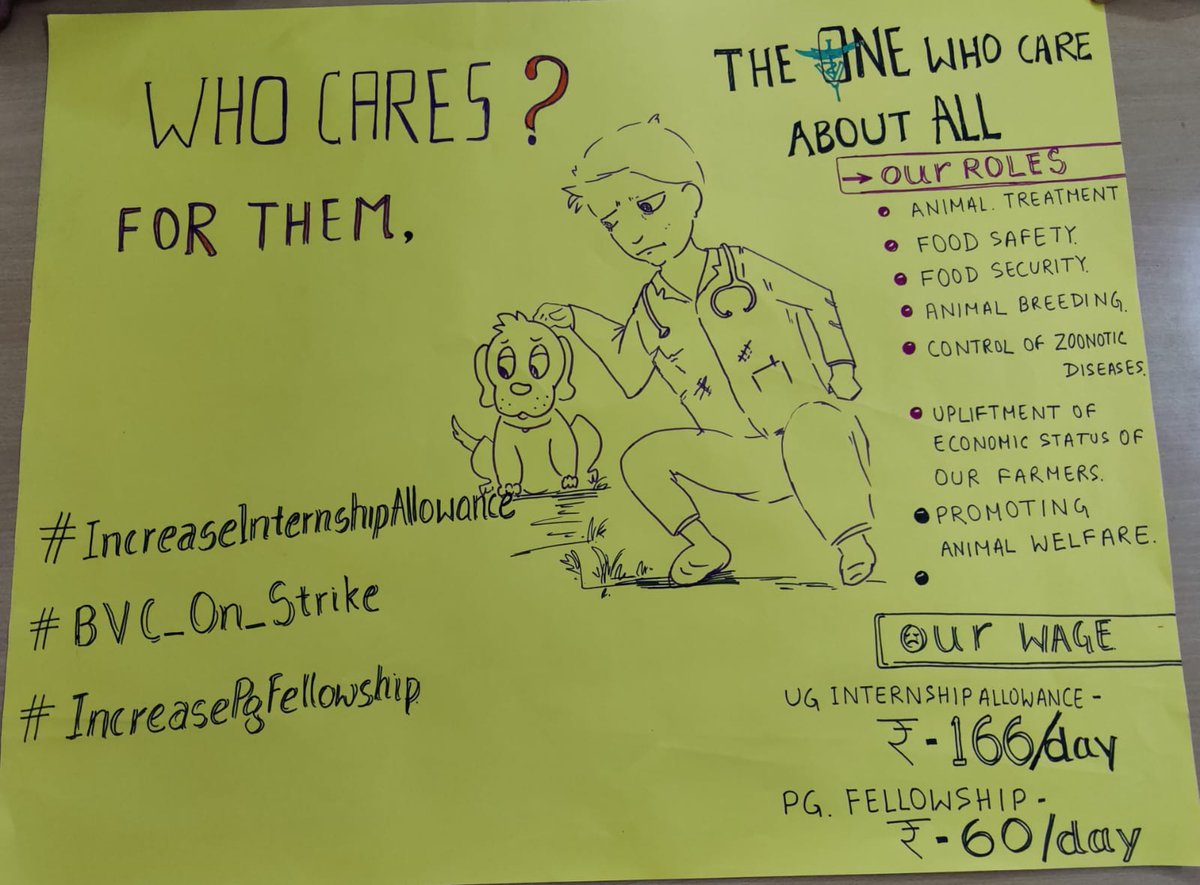 WHO CARES ?
FOR THEM,
THE ONE WHO CARE
ABOUT ALL
→ OUR ROLES
ANIMAL. TREATMENT
FOOD SAFETY.
FOOD SECURITY.
ANIMAL BREEDING.
CONTROL OF ZOONOTIC
DISEASES.
UPLIFTMENT OF
ECONOMIC STATUS OF
OUR FARMERS.
PROMOTING
ANIMAL WELFARE.
#IncreaseInternshipAllowance
#BVC_On_Strike
#IncreasePgFellowship
OUR WAGE
UG INTERNSHIP ALLOWANCE -
₹-166/day
PG. FELLOWSHIP -
₹-60/day